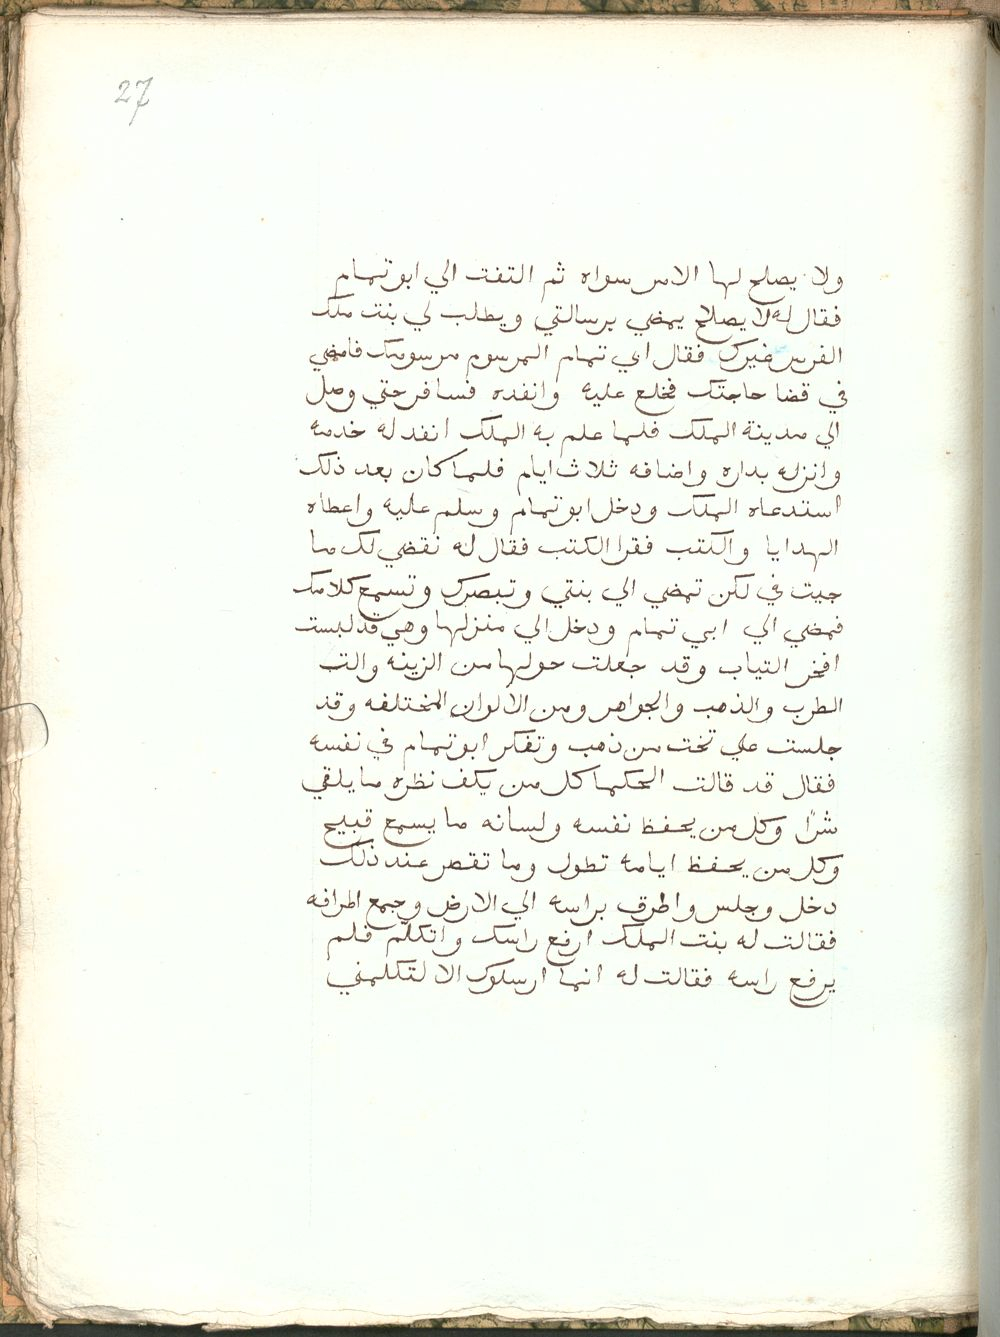 27
ولا يصلح لها الامر سواه ثم التفت الي ابو تمام
فقال له لا يصلح يمضي برسالتي ويطلب لي بنت ملك
الفرس غيرك فقال ابي تمام المرسوم مرسومك فامضي
في قضا حاجتك فخلع عليه وانفده فسافر حتي وصل
الي مدينة الملك فلما علم به الملك انفد له خدمه
وانزله بداره واضافه ثلاث ايام فلما كان بعد ذلك
استدعاه الملك ودخل ابو تمام وسلم عليه واعطاه
الهدايا والكتب فقرا الكتب فقال له نقضي لك ما
جيت في لكن تمضي الي بنتي وتبصرك وتسمع كلامك
فمضي الي ابي تمام ودخل الي منزلها وهي قد لبست
افخر التياب وقد جعلت حولها من الزينه والت
الطرب والذهب والجواهر ومن الالوان المختلفه وقد
جلست علي تخت من ذهب وتفكر ابو تمام في نفسه
فقال قد قالت الحكما كل من يكف نظره ما يلقي
شرا وكل من يحفظ نفسه ولسانه ما يسمع قبيح
وكل من يحفظ ايامه تطول وما تقصر عند ذلك
دخل وجلس واطرق براسه الي الارض وجمع اطرافه
فقالت له بنت الملك ارفع راسك واتكلم فلم
يرفع راسه فقالت له انما ارسلوك الا لتكلمني